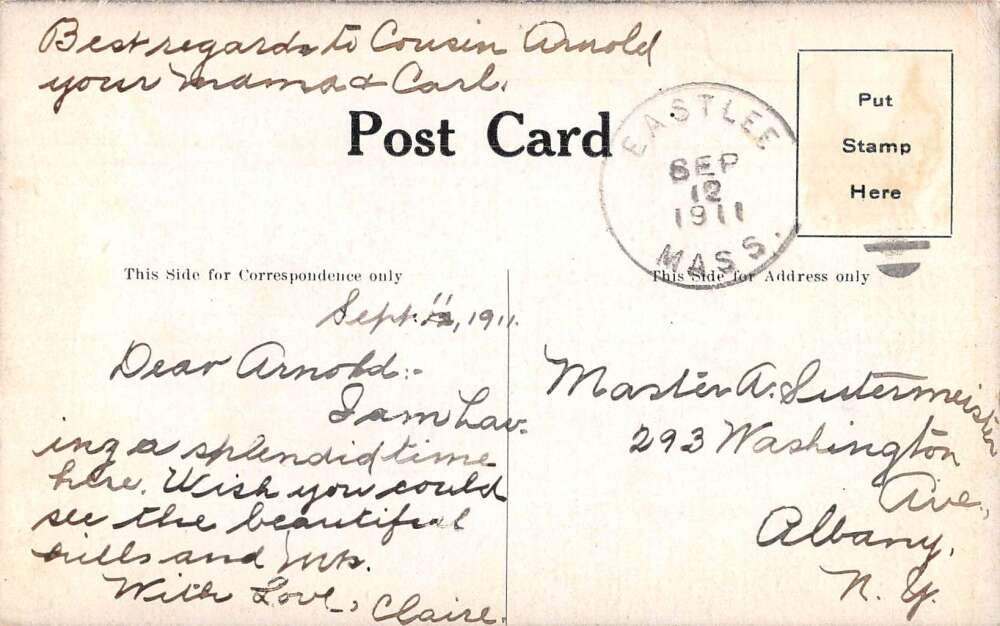 Best regards to Cousin Arnold
your mama & Carl.
Post Card
EAST LEE
SEP
12
1911
MASS.
Put
Stamp
Here
This Side for Correspondence only
This Side for Address only
Sept. 11, 1911.
Dear Arnold:-
I am hav-
ing a splendid time
here. Wish you could
see the beautiful
hills and Mts.
With Love, Claire.
Master A. Sutermeister
293 Washington
Ave,
Albany,
N. Y.